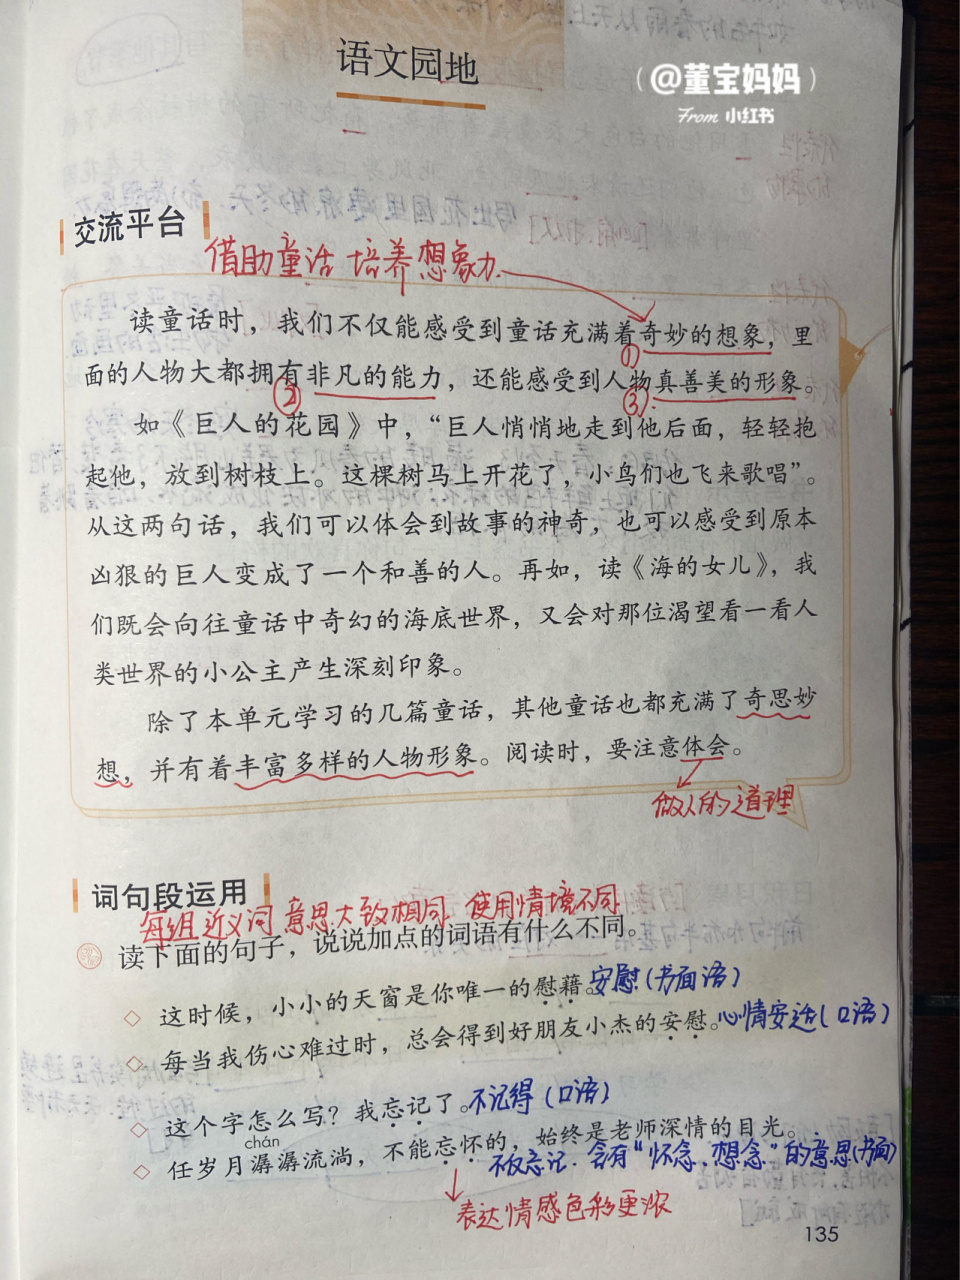 语文园地
（@董宝妈妈）
From 小红书
交流平台
借助童话 培养想象力
读童话时，我们不仅能感受到童话充满着奇妙的想象，里
①
面的人物大都拥有非凡的能力，还能感受到人物真善美的形象。
② ③
如《巨人的花园》中，“巨人悄悄地走到他后面，轻轻抱
起他，放到树枝上。这棵树马上开花了，小鸟们也飞来歌唱”。
从这两句话，我们可以体会到故事的神奇，也可以感受到原本
凶狠的巨人变成了一个和善的人。再如，读《海的女儿》，我
们既会向往童话中奇幻的海底世界，又会对那位渴望看一看人
类世界的小公主产生深刻印象。
除了本单元学习的几篇童话，其他童话也都充满了奇思妙
想，并有着丰富多样的人物形象。阅读时，要注意体会。
做人的道理
词句段运用
每组近义词 意思大致相同 使用情境不同
读下面的句子，说说加点的词语有什么不同。
◇ 这时候，小小的天窗是你唯一的慰藉。安慰(书面语)
◇ 每当我伤心难过时，总会得到好朋友小杰的安慰。心情安适(口语)
◇ 这个字怎么写？我忘记了。不记得(口语)
chán
◇ 任岁月潺潺流淌，不能忘怀的，始终是老师深情的目光。
不仅忘记.会有“怀念、想念”的意思(书面)
表达情感色彩更浓
135